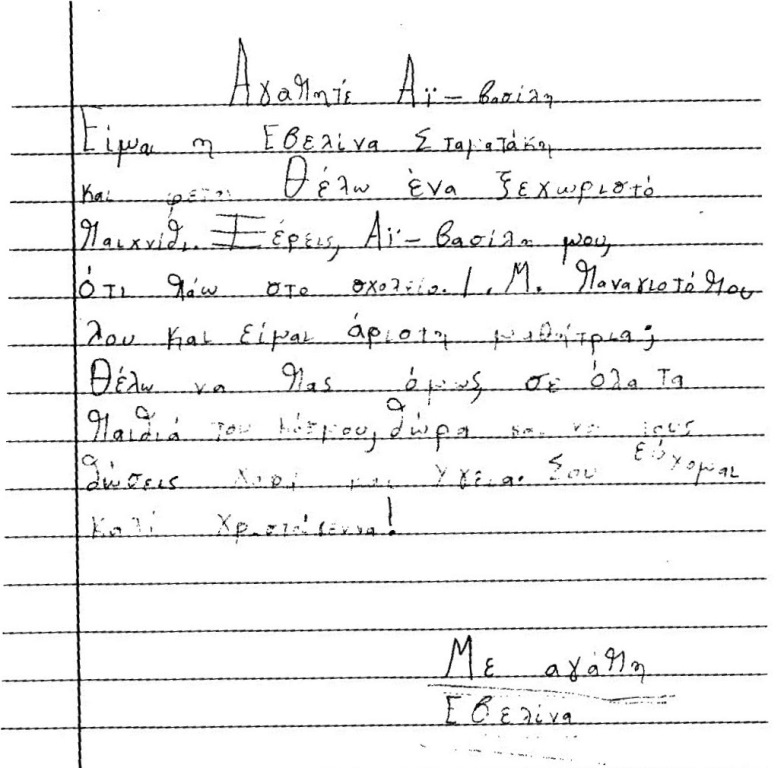 Αγαπητέ Αϊ-βασίλη
Είμαι η Εβελίνα Σταματάκη
και φέτος Θέλω ένα ξεχωριστό
παιχνίδι. Ξέρεις, Αϊ-βασίλη μου,
ότι πάω στο σχολείο Ι. Μ. Παναγιοτόπου
λου και είμαι άριστη μαθήτρια;
Θέλω να πας όμως σε όλα τα
παιδιά του κόσμου, δώρα και να τους
δώσεις χαρά και υγεία. Σου εύχομαι
καλά Χριστούγεννα!
Με αγάπη
Εβελίνα